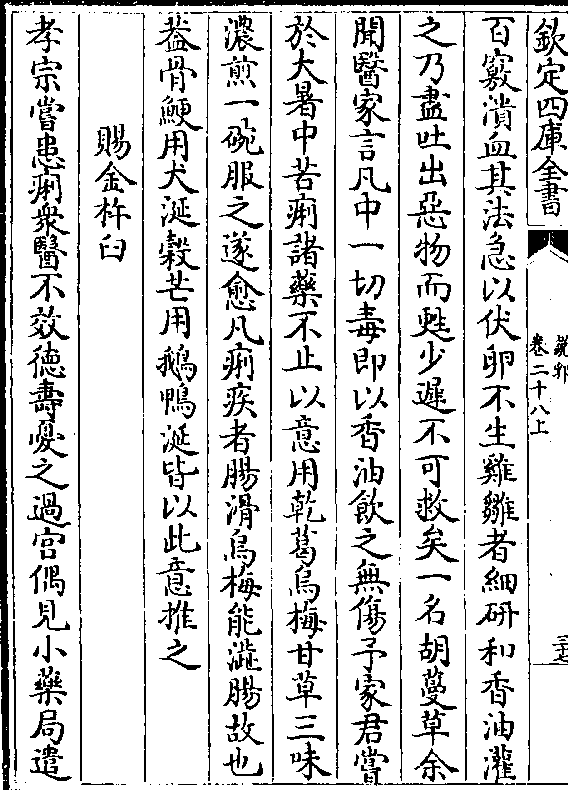 欽定四庫全書
説郛
卷二十八上
三七
百竅潰血其法急以伏卵不生雞雛者細研和香油灌
之乃盡吐出惡物而甦少遲不可救矣一名胡蔓草余
聞醫家言凡中一切毒即以香油飲之無傷予家君嘗
於大暑中苦痢諸藥不止以意用乾葛烏梅甘草三味
濃煎一碗服之遂愈凡痢疾者腸滑烏梅能澁腸故也
葢骨鯁用犬涎穀芒用鵝鴨涎皆以此意推之
賜金杵臼
孝宗嘗患痢衆醫不效德壽憂之過宫偶見小藥局遣